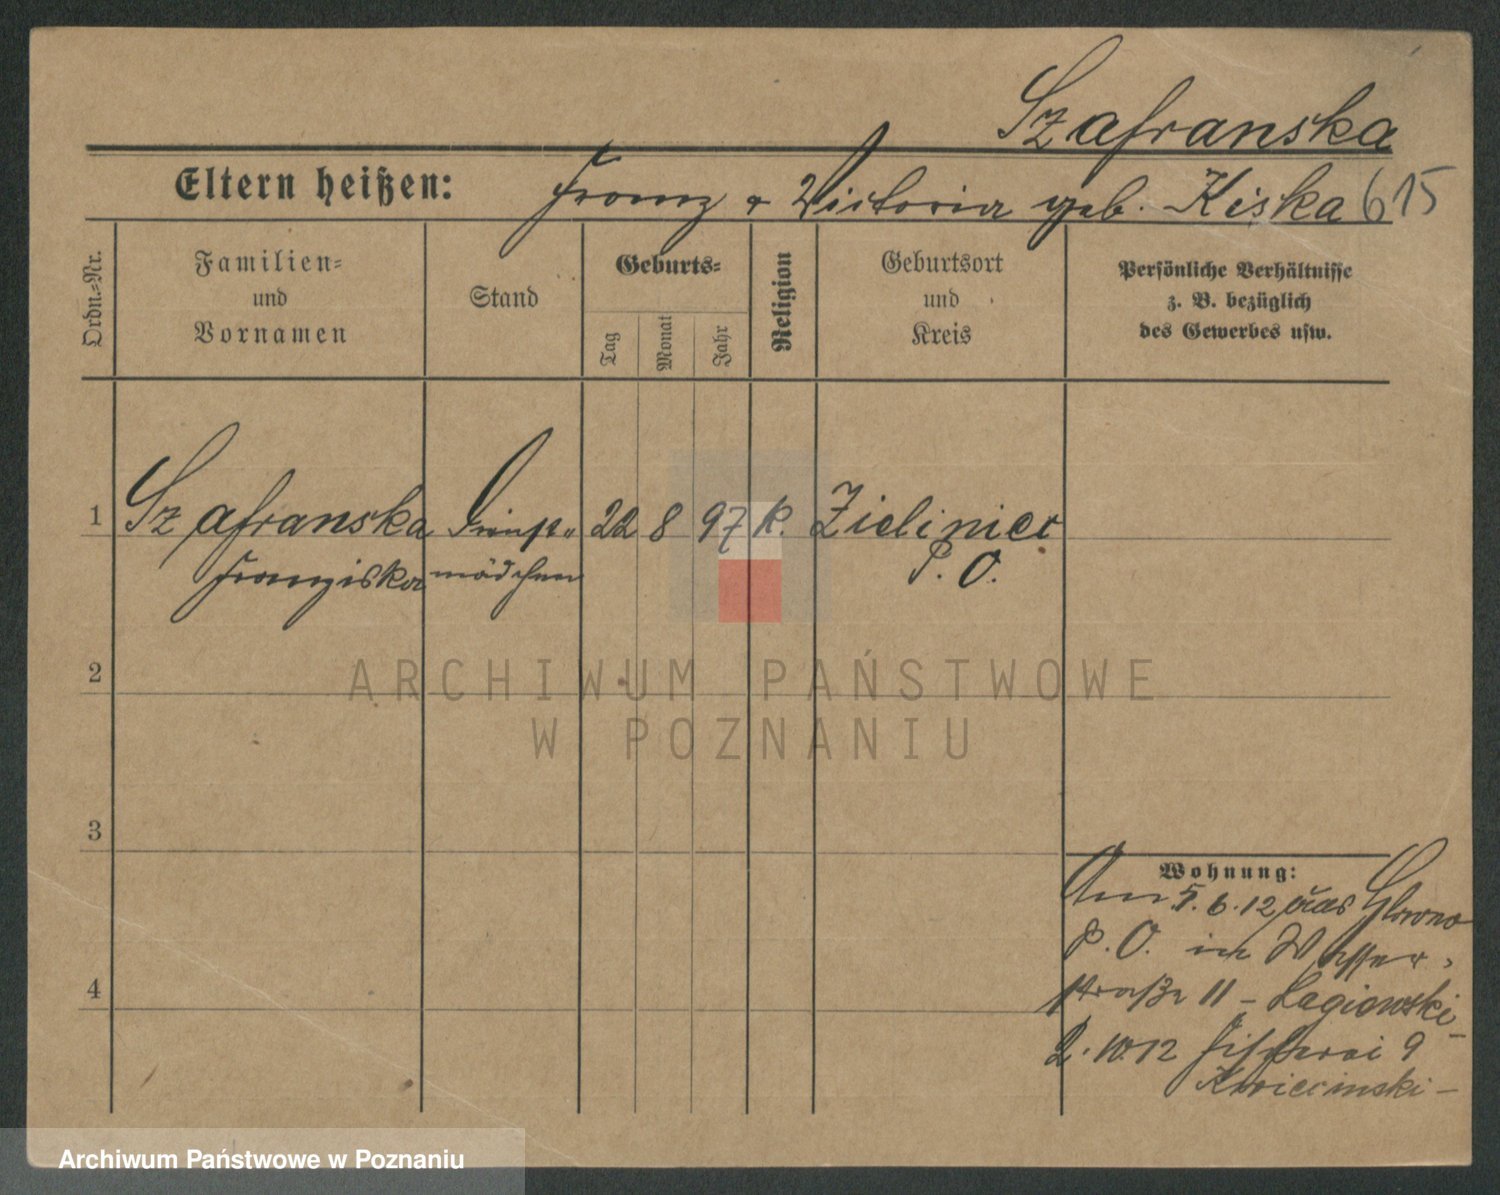 Szafranska
Eltern heißen: Franz & Victoria geb. Kiska 615
Ordn.=Nr.
Familien=
und
Vornamen
Stand
Geburts=
Tag
Monat
Jahr
Religion
Geburtsort
und
Kreis
Persönliche Verhältnisse
z. B. bezüglich
des Gewerbes usw.
1 Szafranska Dienst= 22 8 97 k. Zieliniec
Franziska mädchen P. O.
2
ARCHIWUM PAŃSTWOWE
W POZNANIU
3
4
Wohnung:
Am 5.6.12 Glowno
P. O. in Wasser=
straße 11 – Lagiowski –
2.10.12 Fischerei 9
Kwiecinski –
Archiwum Państwowe w Poznaniu